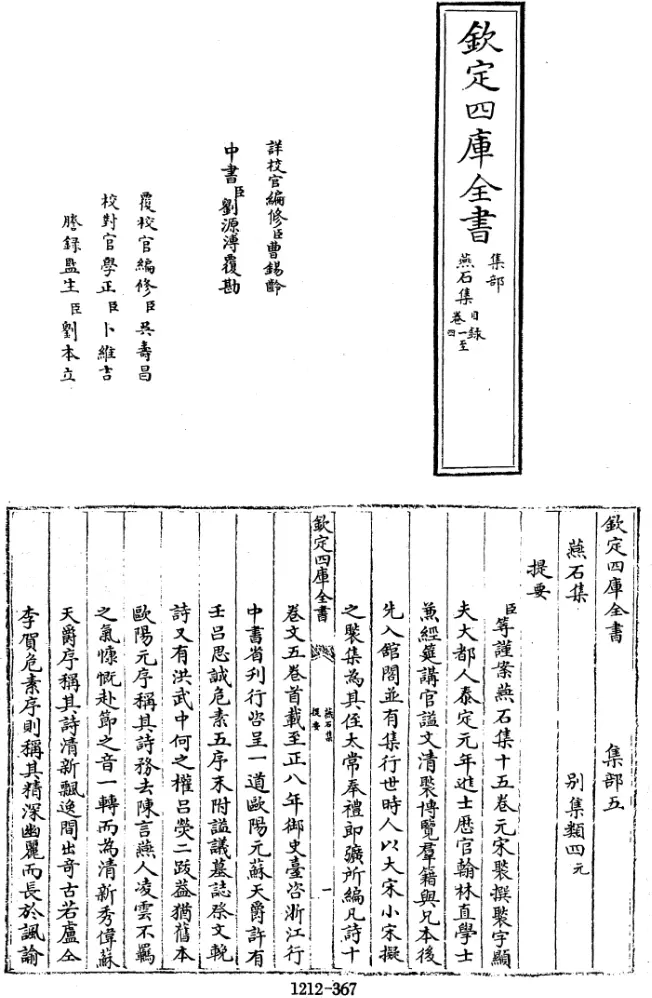 欽定四庫全書
集部
燕石集
目錄
卷一至
四
詳校官編修臣曹錫齡
中書臣劉源溥覆勘
覆校官編修臣吳壽昌
校對官學正臣卜維吉
謄錄監生臣劉本立
欽定四庫全書 集部五
燕石集 別集類四元
提要
臣等謹案燕石集十五卷元宋褧撰褧字顯
夫大都人泰定元年進士歷官翰林直學士
兼經筵講官謚文清褧博覽羣籍與兄本後
先入館閣並有集行世時人以大宋小宋擬
之褧集為其侄太常奉禮郎彍所編凡詩十
欽定四庫全書
燕石集
提要
一
卷文五卷首載至正八年御史臺咨浙江行
中書省刊行咨呈一道歐陽元蘇天爵許有
壬呂思誠危素五序末附謚議墓誌祭文輓
詩又有洪武中何之權呂熒二跋益猶舊本
歐陽元序稱其詩務去陳言燕人凌雲不羈
之氣慷慨赴節之音一轉而為清新秀偉蘇
天爵序稱其詩清新飄逸間出奇古若盧仝
李賀危素序則稱其精深幽麗而長於諷諭
1212-367